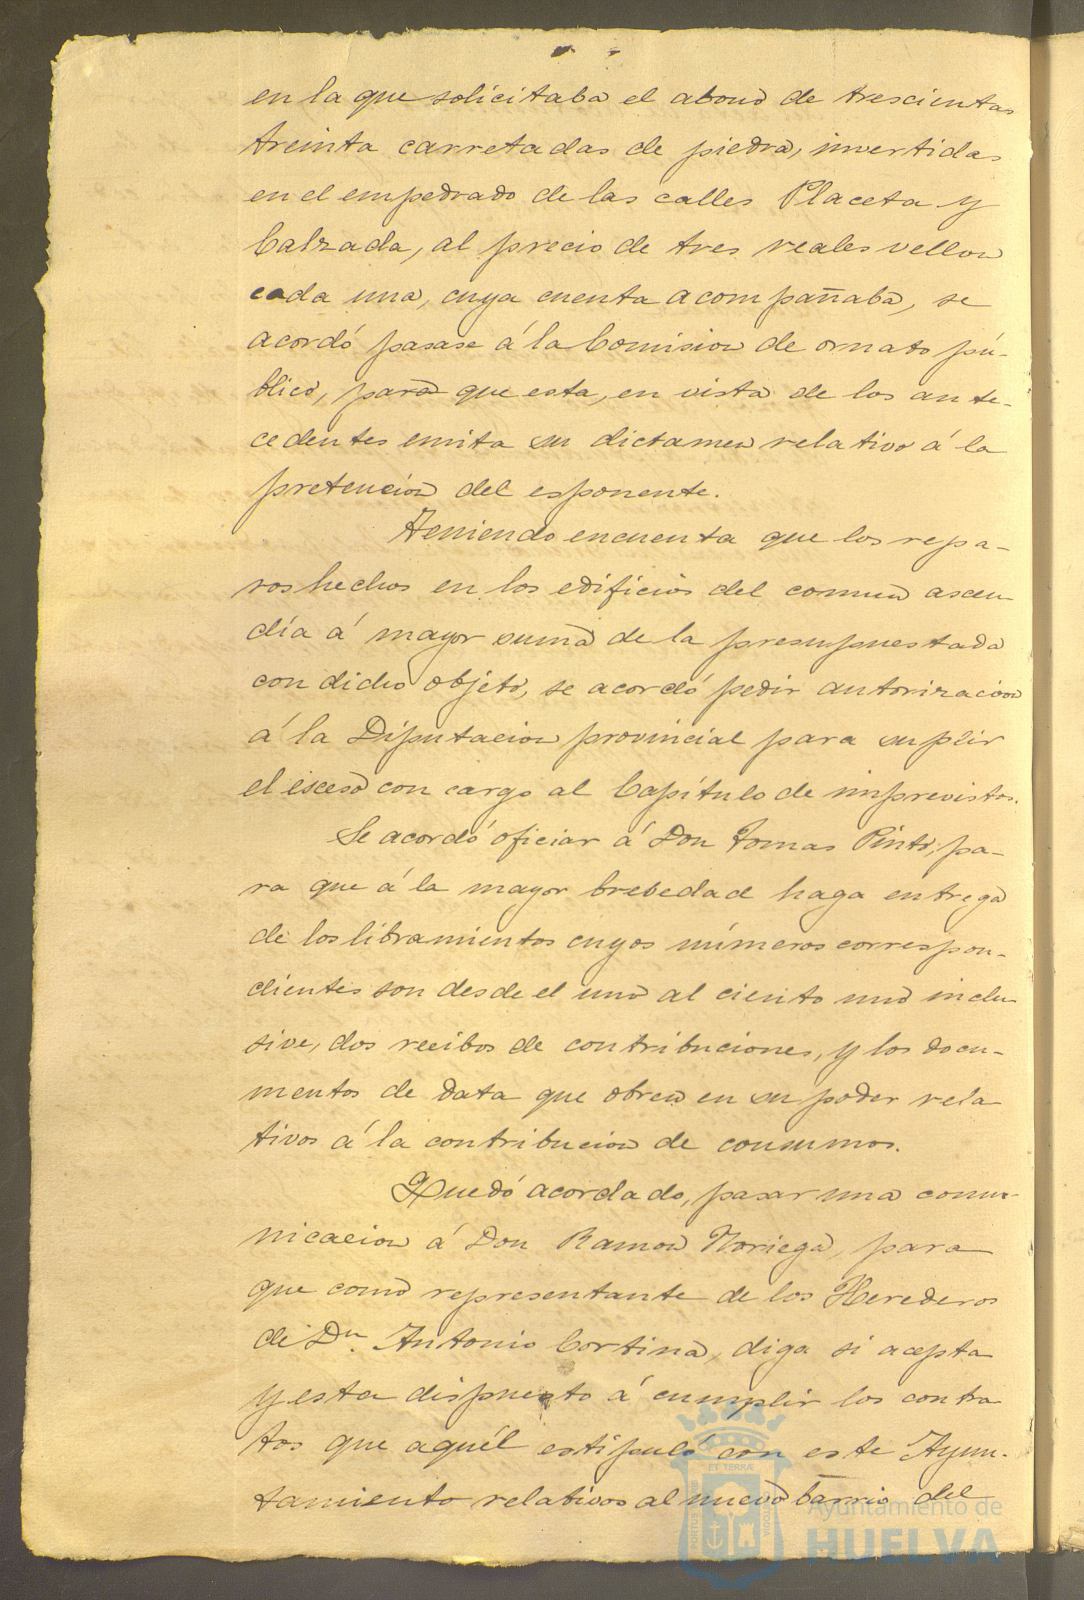 en la que solicitaba el abono de trescientas
treinta carretadas de piedra, invertidas
en el empedrado de las calles Placeta y
Calzada, al precio de tres reales vellon
cada una, cuya cuenta acompañaba, se
acordó pasase á la Comision de ornato pú-
blico, para que esta, en vista de los ante-
cedentes emita su dictamen relativo á la
pretencion del esponente.
Teniendo encuenta que los repa-
ros hechos en los edificios del comun ascen
día á mayor suma de la presupuestada
con dicho objeto, se acordó pedir autorizacion
á la Diputacion provincial para suplir
el esceso con cargo al Capítulo de imprevistos.
Se acordó oficiar á Don Tomas Pinto, pa-
ra que á la mayor brebedad haga entrega
de los libramientos cuyos números correspon-
dientes son desde el uno al ciento uno inclu-
sive, dos recibos de contribuciones, y los docu-
mentos de data que obren en su poder rela
tivos á la contribucion de consumos.
Quedó acordado, pasar una comu-
nicacion á Don Ramon Noriega, para
que como representante de los Herederos
de Dn. Antonio Cortina, diga si acepta
y esta dispuesto á cumplir los contra
tos que aquél estipuló con este Ayun-
tamiento relativos al nuevo barrio del
Ayuntamiento de
HUELVA